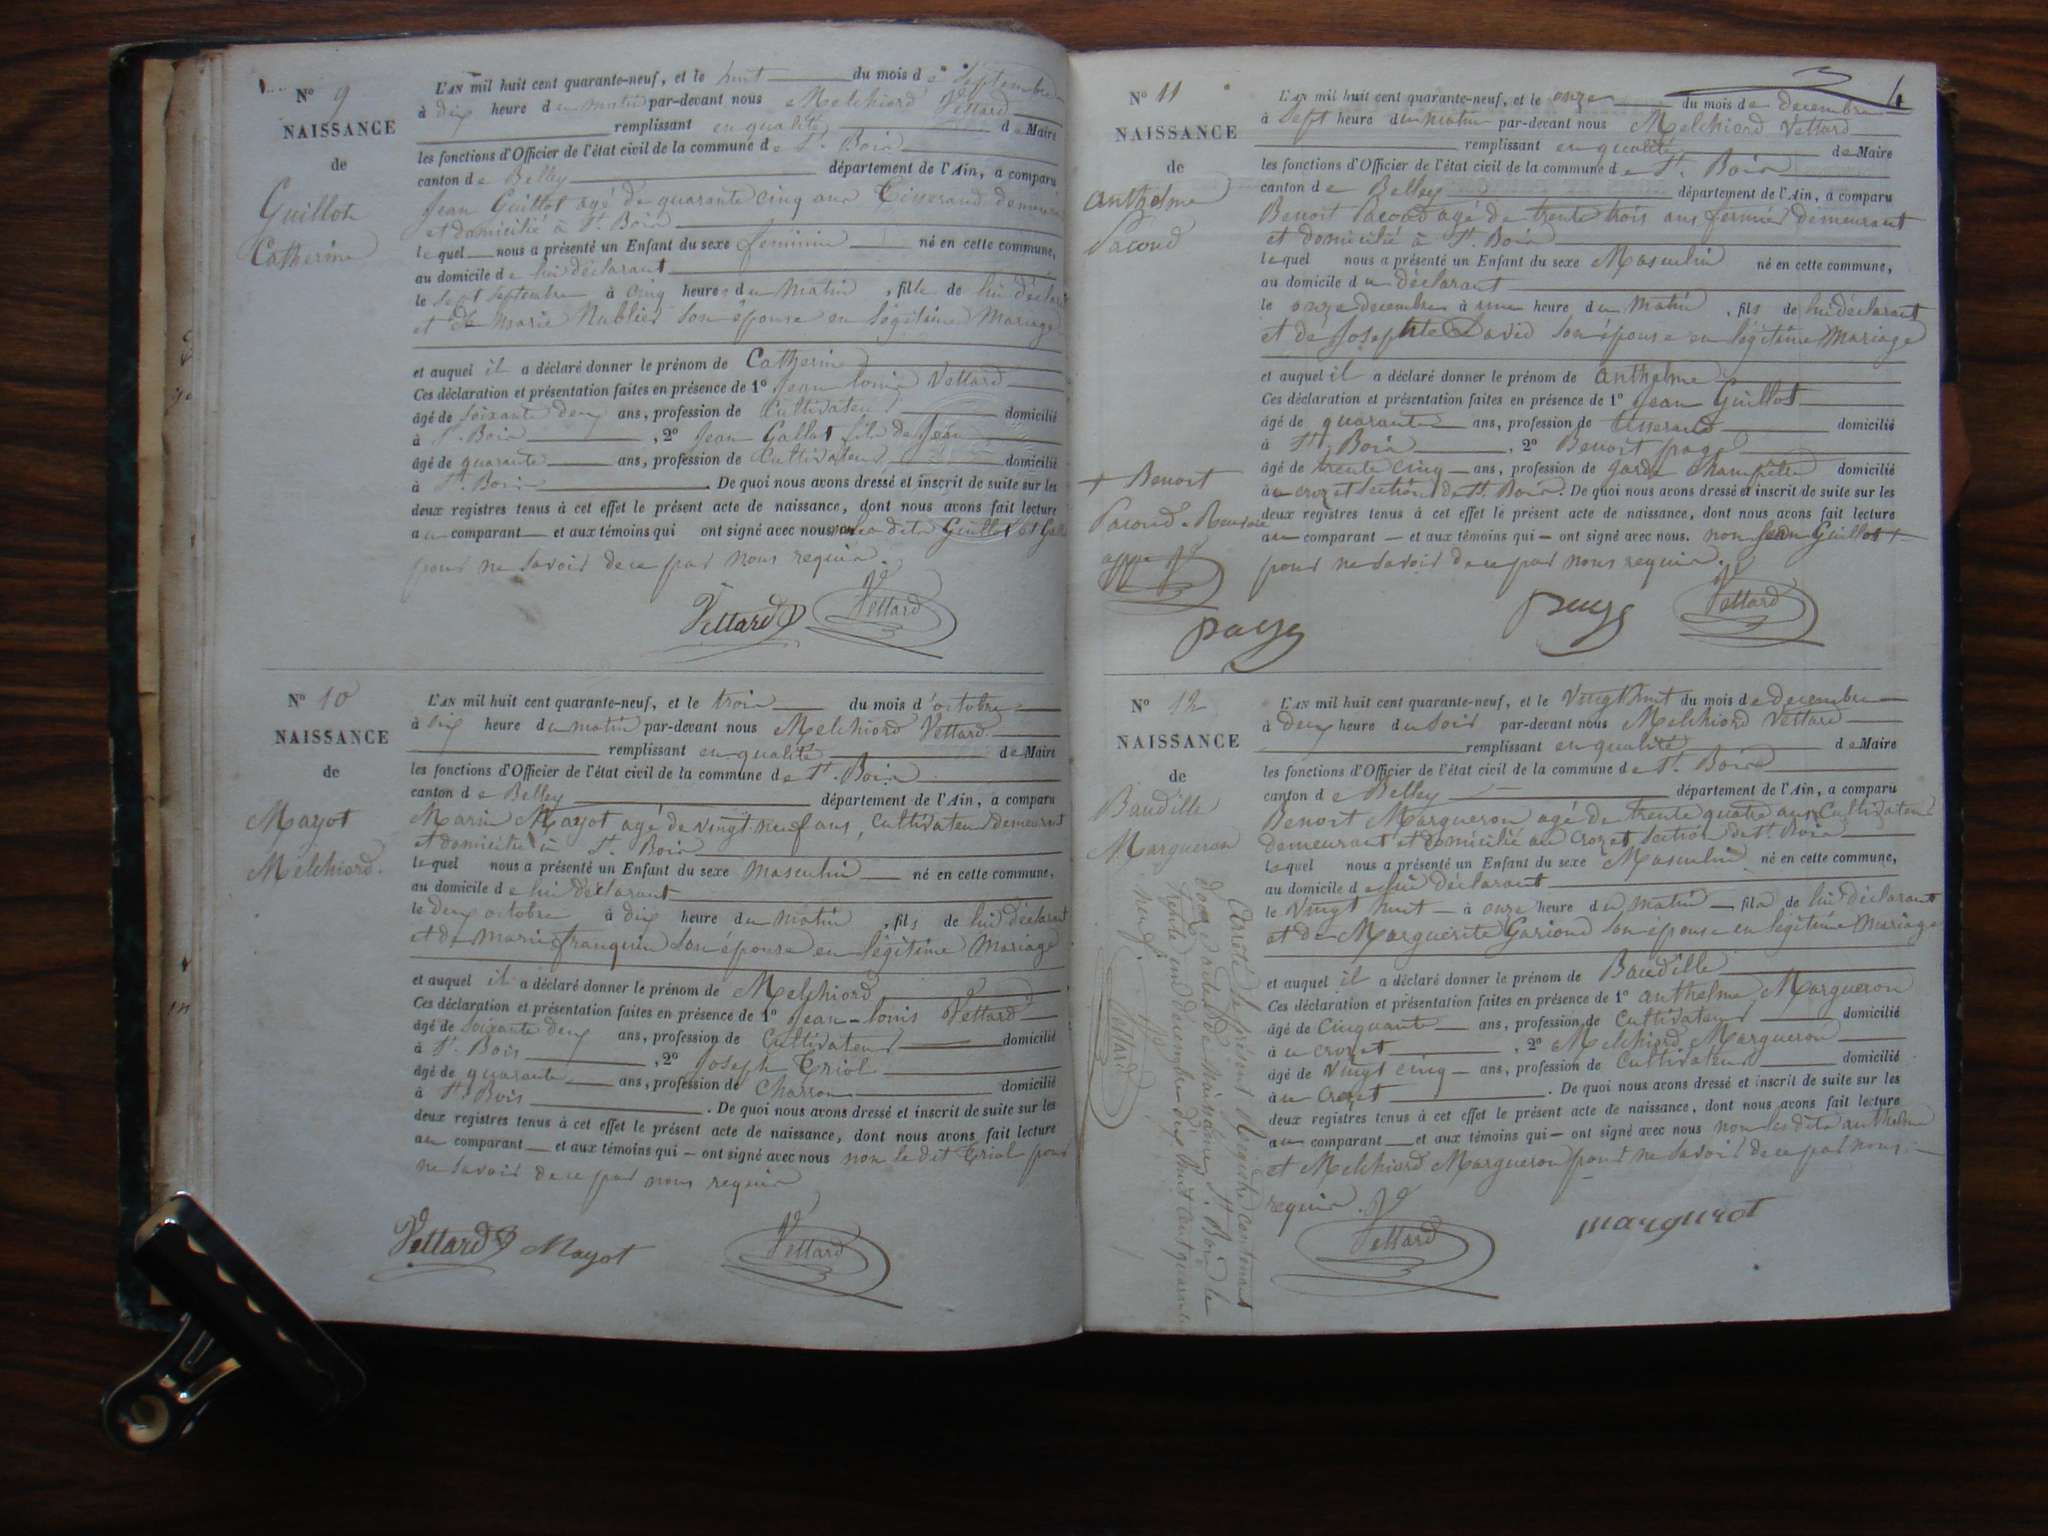 N° 9
NAISSANCE
de
Guillot
Catherine
L'AN mil huit cent quarante-neuf, et le huit du mois de Septembre
à dix heure du matin par-devant nous Melchiord Vettard
remplissant en qualité de Maire
les fonctions d'Officier de l'état civil de la commune de St. Bois
canton de Belley département de l'Ain, a comparu
Jean Guillot agé de quarante cinq ans Tisserand demeurant
et domicilié à St. Bois
lequel nous a présenté un Enfant du sexe féminin né en cette commune,
au domicile de lui déclarant
le sept Septembre à cinq heures du matin, fille de lui déclarant
et de marie Nublier son épouse en légitime Mariage
et auquel il a déclaré donner le prénom de Catherine
Ces déclaration et présentation faites en présence de 1° Jean louis Vettard
âgé de soixante deux ans, profession de Cultivateur domicilié
à St. Bois, 2° Jean Gallot fils de Jean
âgé de quarante ans, profession de Cultivateur domicilié
à St. Bois. De quoi nous avons dressé et inscrit de suite sur les
deux registres tenus à cet effet le présent acte de naissance, dont nous avons fait lecture
au comparant et aux témoins qui ont signé avec nous non les dits Guillot et Gallot
pour ne savoir de ce par nous requis
Vettard Vettard
N° 10
NAISSANCE
de
Mayot
Melchiord.
L'AN mil huit cent quarante-neuf, et le trois du mois d'octobre
à six heure du matin par-devant nous Melchiord Vettard
remplissant en qualité de Maire
les fonctions d'Officier de l'état civil de la commune de St. Bois
canton de Belley département de l'Ain, a comparu
Marin Mayot agé de vingt neuf ans, cultivateur demeurant
et domicilié à St. Bois
lequel nous a présenté un Enfant du sexe masculin né en cette commune,
au domicile de lui déclarant
le deux octobre à dix heure du matin, fils de lui déclarant
et de Marie franquin son épouse en légitime Mariage
et auquel il a déclaré donner le prénom de Melchiord
Ces déclaration et présentation faites en présence de 1° Jean-louis Vettard
âgé de soixante deux ans, profession de Cultivateur domicilié
à St. Bois, 2° Joseph Triol
âgé de quarante ans, profession de Charron domicilié
à St. Bois. De quoi nous avons dressé et inscrit de suite sur les
deux registres tenus à cet effet le présent acte de naissance, dont nous avons fait lecture
au comparant et aux témoins qui - ont signé avec nous non le dit Triol pour
ne savoir de ce par nous requis
Vettard Mayot Vettard
4
N° 11
NAISSANCE
de
anthelme
Pacoud
L'AN mil huit cent quarante-neuf, et le onze du mois de decembre
à Sept heure du matin par-devant nous Melchiord Vettard
remplissant en qualité de Maire
les fonctions d'Officier de l'état civil de la commune de St. Bois
canton de Belley département de l'Ain, a comparu
Benoit Pacoud agé de trente trois ans fermier demeurant
et domicilié à St. Bois
lequel nous a présenté un Enfant du sexe Masculin né en cette commune,
au domicile du déclarant
le onze decembre à une heure du matin, fils de lui déclarant
et de Josephte David son épouse en légitime Mariage
et auquel il a déclaré donner le prénom de anthelme
Ces déclaration et présentation faites en présence de 1° Jean Guillot
âgé de quarante ans, profession de tisserand domicilié
à St. Bois, 2° Benoit page
âgé de trente cinq ans, profession de garde champêtre domicilié
à u crozet Section de St. Bois. De quoi nous avons dressé et inscrit de suite sur les
deux registres tenus à cet effet le présent acte de naissance, dont nous avons fait lecture
au comparant - et aux témoins qui - ont signé avec nous. non Jean Guillot +
pour ne savoir de ce par nous requis.
+ Benoit
Pacoud. Renvoi
app
page Vettard
N° 12
NAISSANCE
de
Baudille
Margueron
L'AN mil huit cent quarante-neuf, et le Vingt huit du mois de decembre
à deux heure du soir par-devant nous Melchiord Vettard
remplissant en qualité de Maire
les fonctions d'Officier de l'état civil de la commune de St. Bois
canton de Belley département de l'Ain, a comparu
Benoit Margueron agé de trente quatre ans Cultivateur
demeurant et domicilié au Crozet Section de St. Bois
lequel nous a présenté un Enfant du sexe Masculin né en cette commune,
au domicile de lui déclarant
le Vingt huit - à onze heure du matin, fils de lui déclarant
et de Marguerite Gariond son épouse en légitime Mariage
et auquel il a déclaré donner le prénom de Baudille
Ces déclaration et présentation faites en présence de 1° anthelme Margueron
âgé de Cinquante ans, profession de Cultivateur domicilié
à u crozet, 2° Melchiord Margueron
âgé de vingt cinq - ans, profession de Cultivateur domicilié
à u Crozet. De quoi nous avons dressé et inscrit de suite sur les
deux registres tenus à cet effet le présent acte de naissance, dont nous avons fait lecture
au comparant et aux témoins qui - ont signé avec nous non les dits anthelme
et Melchiord Margueron pour ne savoir de ce par nous
requis. Vettard margurot
Arreté le présent Registre contenant
douze actes de naissance St. Bois le
trente un decembre dix huit cent quarante
neuf.
Vettard